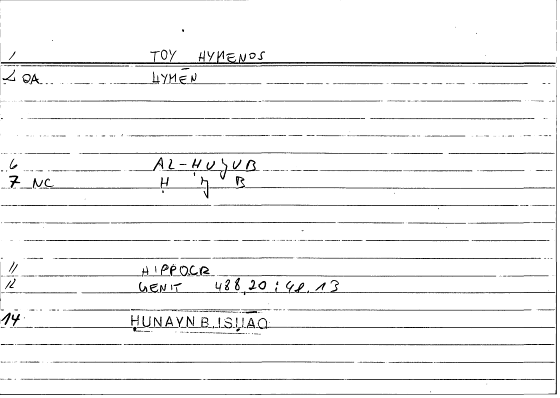 1 TOY HYMENOS
2 OA HYMĒN
6 AL-ḤUǧUB
7 NC Ḥ ǧ B
11 HIPPOCR
12 GENIT 488,20:48,13
14 ḤUNAYN B. ISḤĀQ